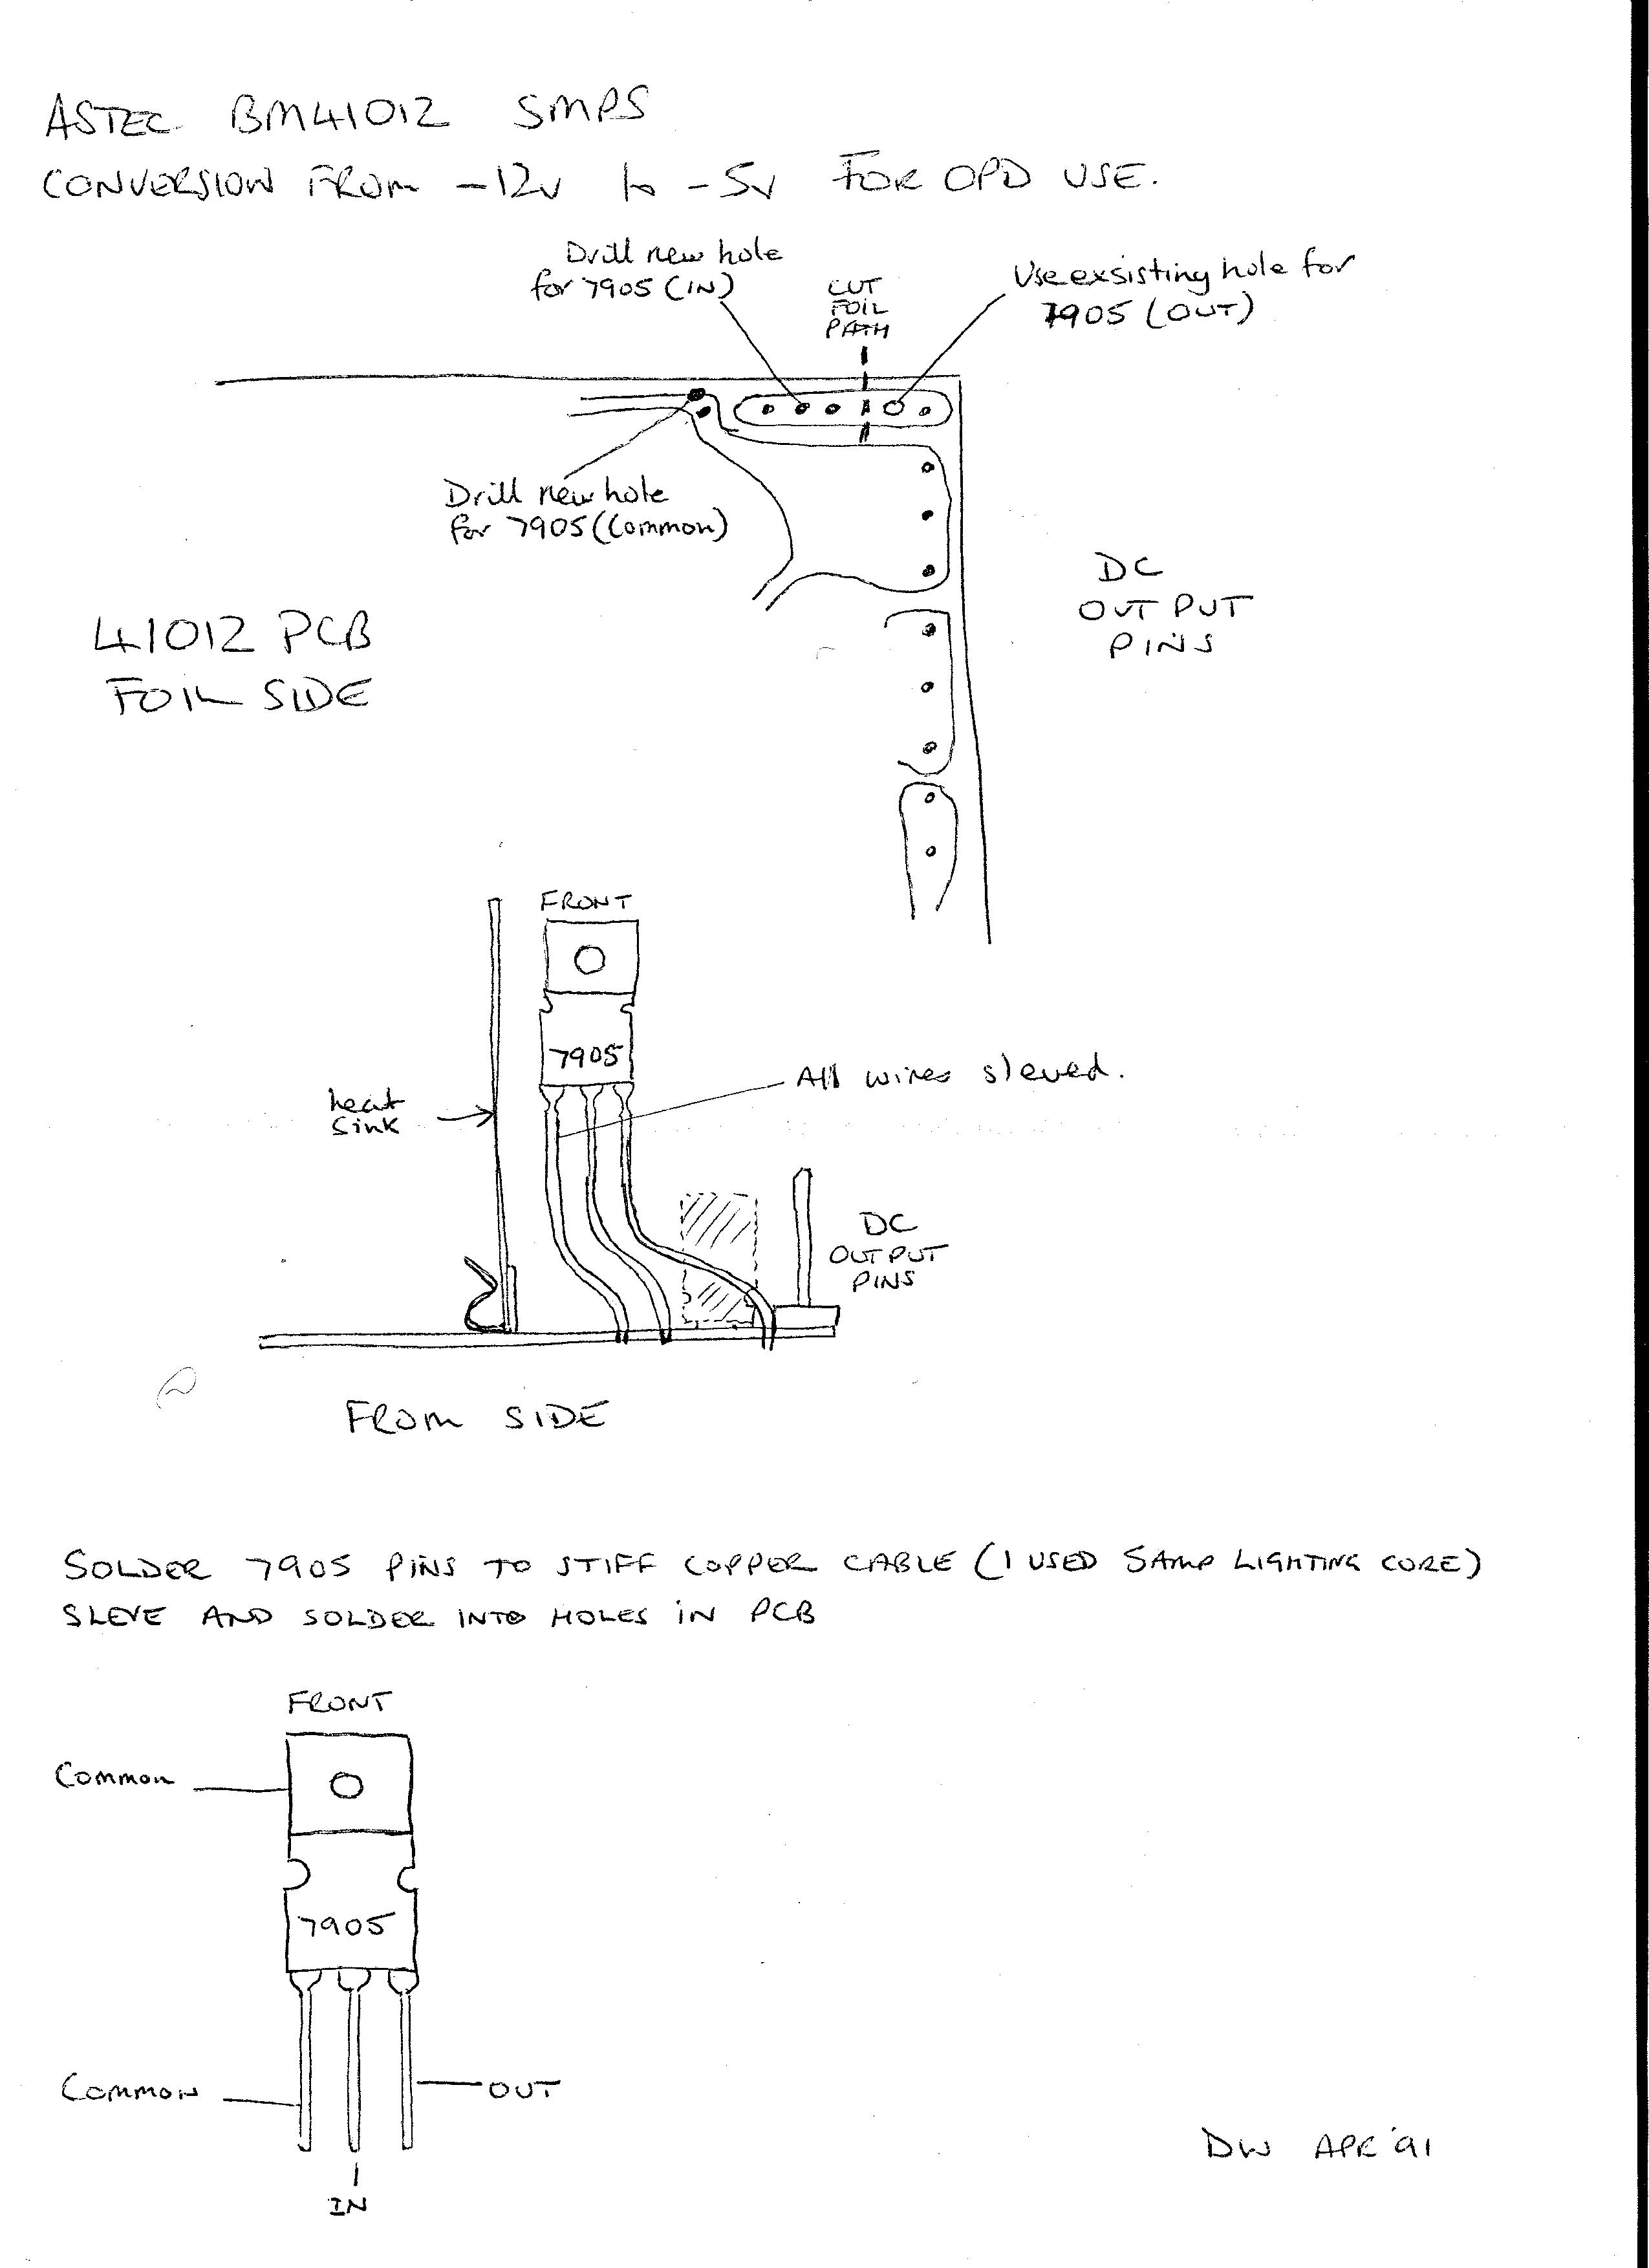 ASTEC BM41012 SMPS
CONVERSION FROM -12v to -5v FOR OPD USE.
Drill new hole
for 7905 (IN)
CUT
FOIL
PATH
Use exsisting hole for
7905 (OUT)
Drill new hole
for 7905 (Common)
DC
OUTPUT
PINS
41012 PCB
FOIL SIDE
FRONT
7905
All wires sleved.
heat
sink
DC
OUTPUT
PINS
FROM SIDE
SOLDER 7905 PINS TO STIFF COPPER CABLE (I USED 5AMP LIGHTING CORE)
SLEVE AND SOLDER INTO HOLES IN PCB
FRONT
Common
7905
Common
OUT
IN
DW APR '91